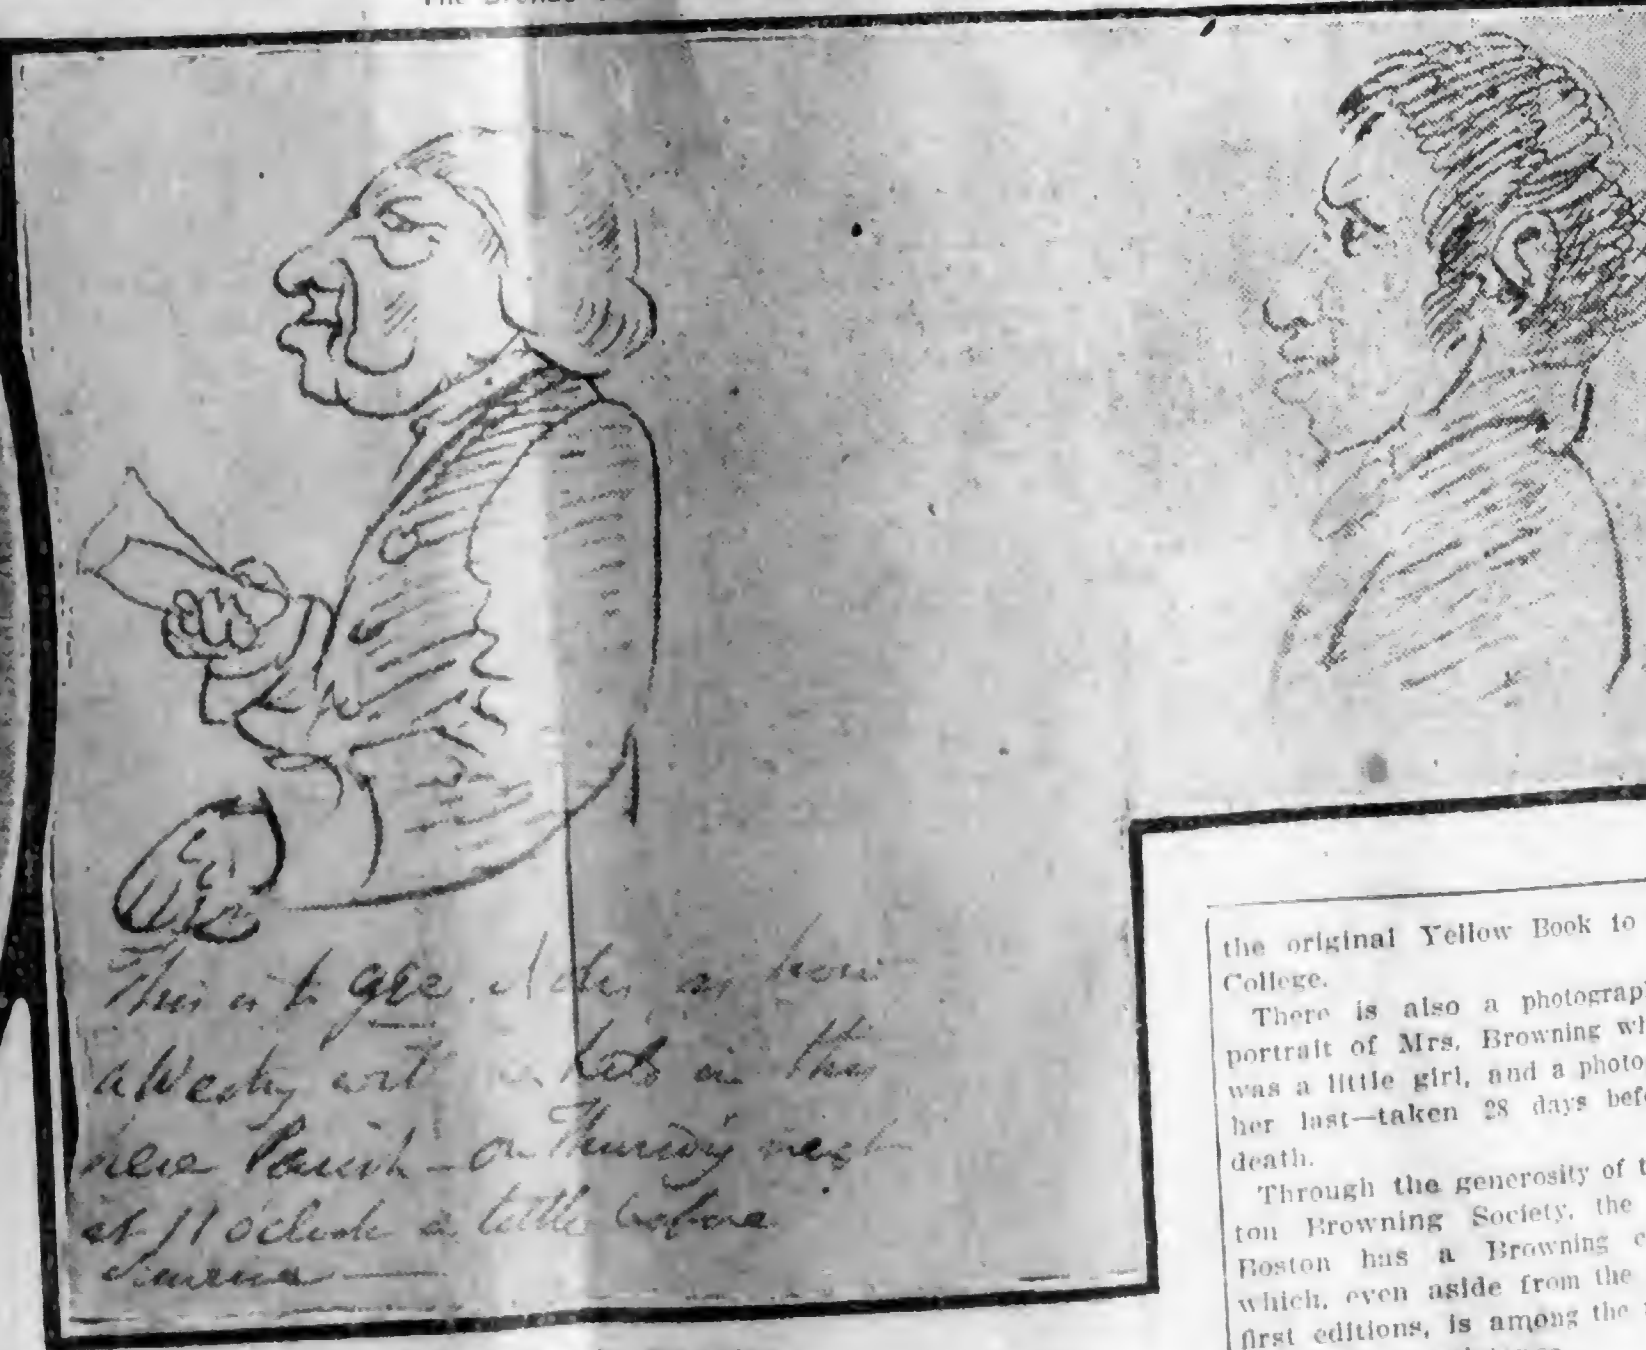 This is to gee
a Vestry in this
here Parish - on Thursday next
at 11 o'clock a little before
the original Yellow Book to
College.
There is also a photograp
portrait of Mrs. Browning wh
was a little girl, and a photo
her last—taken 28 days bef
death.
Through the generosity of t
ton Browning Society, the
Boston has a Browning c
which, even aside from the
first editions, is among the